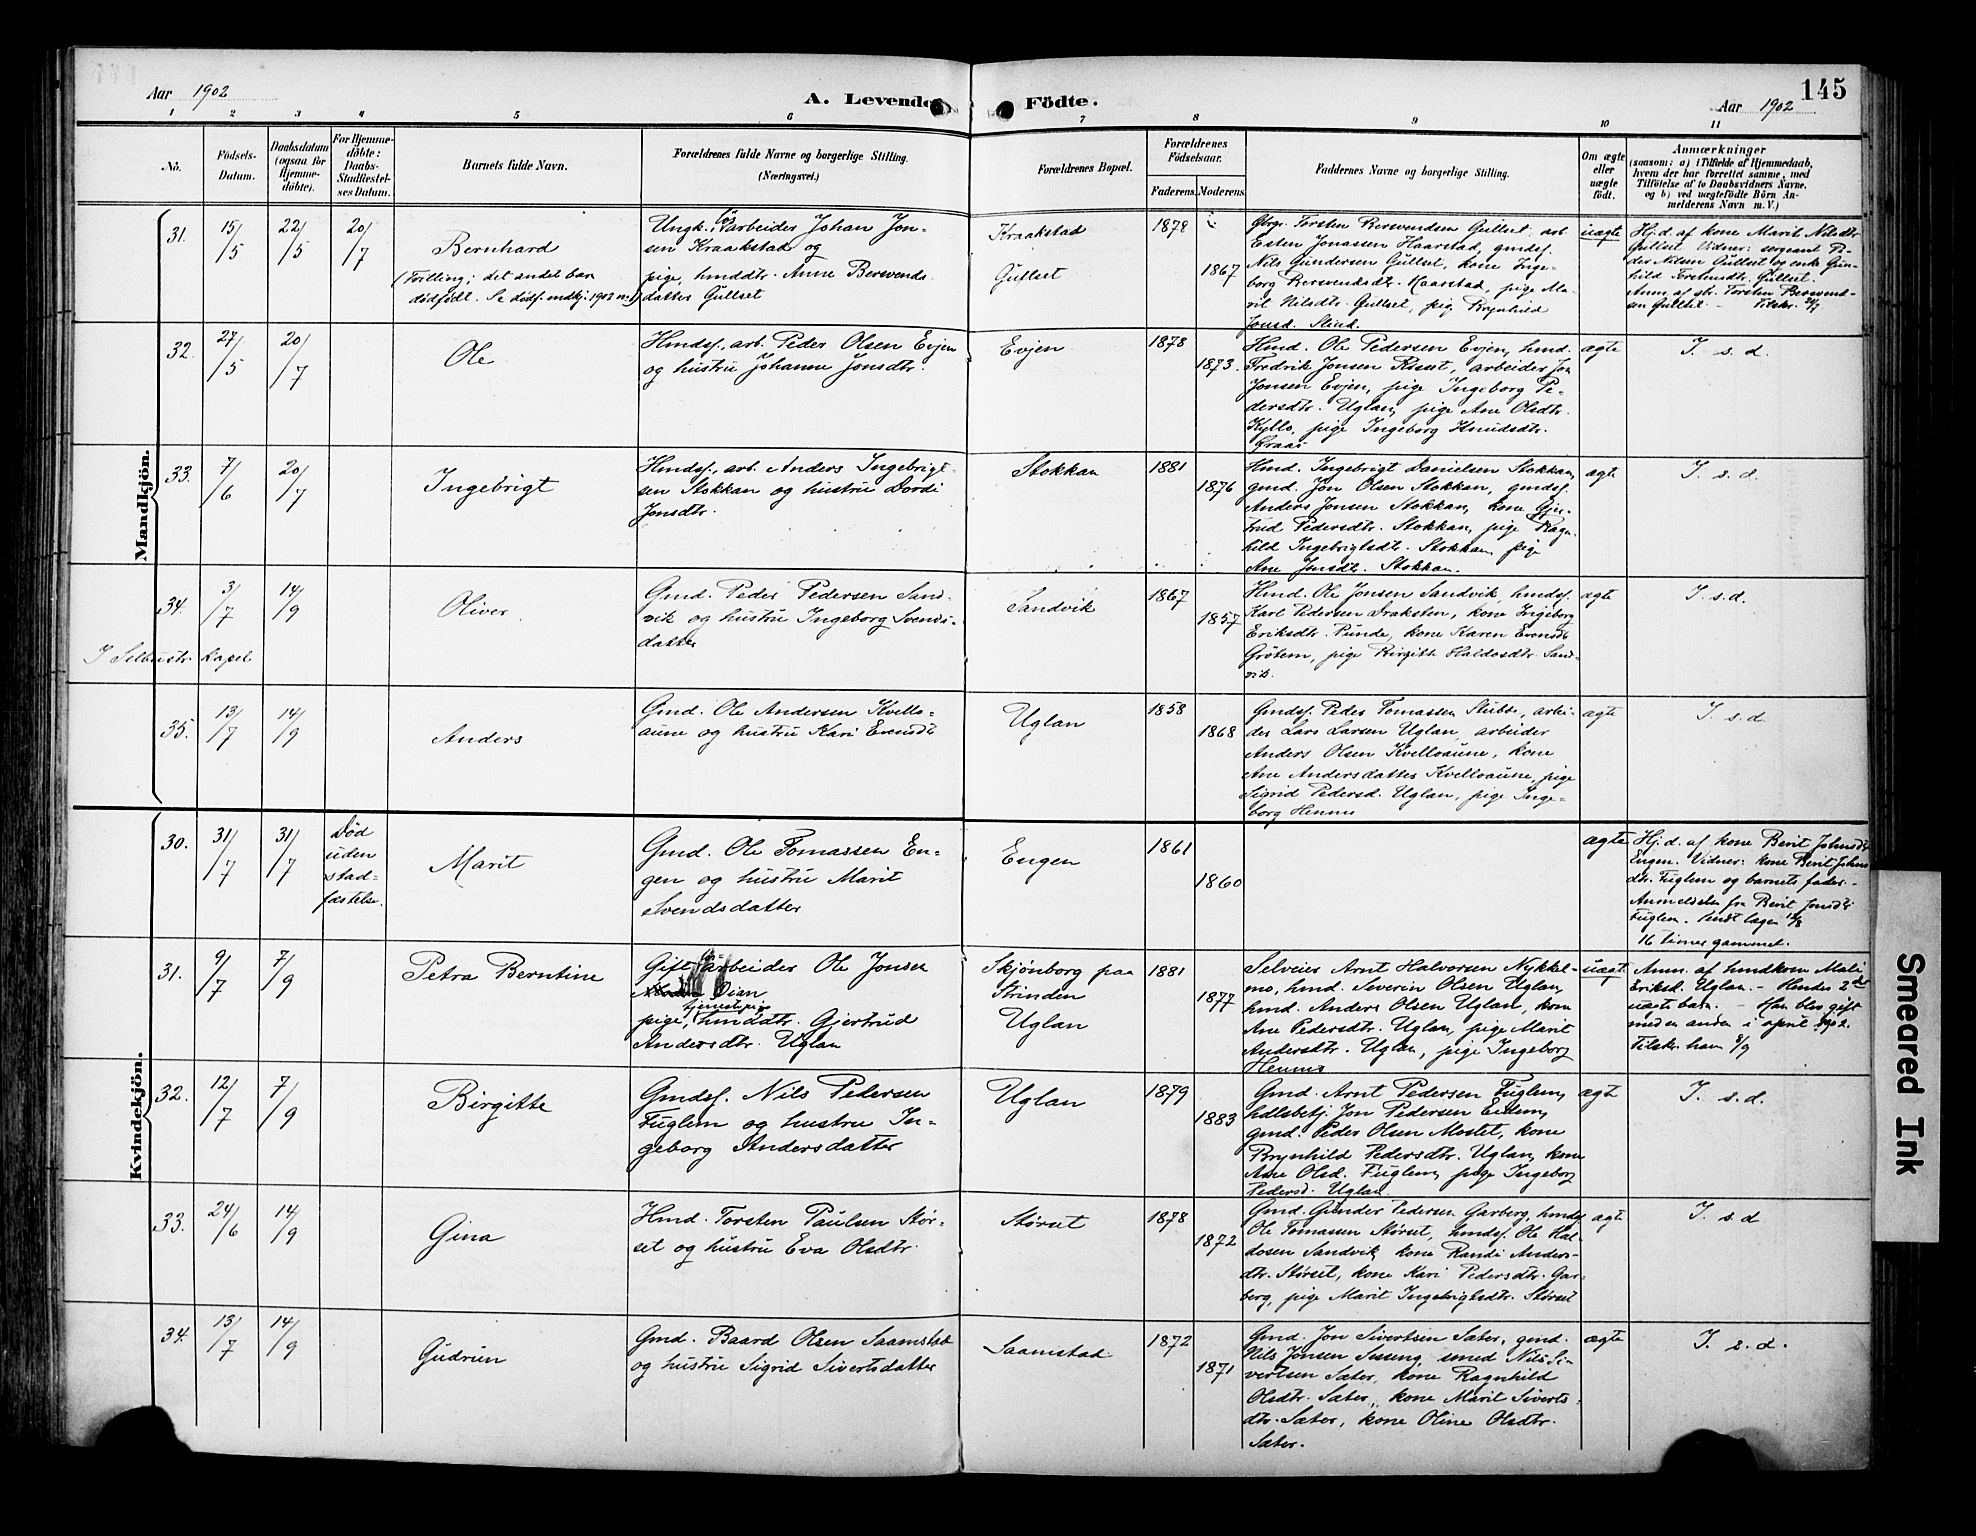 Aar 1902
A. Levende Födte.
145
Aar 1902
1 2 3 4 5 6 7 8 9 10 11
No.
Födsels-
Datum.
Daabsdatum
(ogsaa for
Hjemme-
döbte).
For Hjemme-
döbte:
Daabs-
Stadfæstel-
ses Datum.
Barnets fulde Navn.
Forældrenes fulde Navne og borgerlige Stilling.
(Næringsvei.)
Forældrenes Bopæl.
Forældrenes
Födselsaar.
Faderens.
Moderens.
Faddernes Navne og borgerlige Stilling.
Om ægte
eller
uægte
födt.
Anmærkninger
(saasom: a) i Tilfælde af Hjemmedaab,
hvem der har forrettet samme, med
Tilföielse af to Daabsvidners Navne,
og b) ved uægtefödte Börn An-
melderens Navn m. V.)
Mandkjön.
31.
15/5
22/5
20/7
Bernhard
(Tvilling; det andet barn
dødfødt. Se dødf. mdkj. 1902 no 1)
Ungk. løs-
arbeider Johan Jon-
sen Kraakstad og
pige, hmddtr. Anne Bersvends-
datter Gullset
Kraakstad
Gullset
1878
1867
Gbrgr. Torsten Bersvendsen Gullset, arb.
Esten Jonassen Haarstad, gmdsf.
Nils Gundersen Gullset, kone Inge-
borg Bersvendsdtr. Haarstad, pige Ma-
rit Nilsdtr. Gullset, pig Brynhild
Jonsd. Slind.
uægte
Hj.d. af kone Marit Nilsdtr.
Gullset. Vidner: sergeant Pe-
der Nilsen Gullset og enke Gun-
hild Torstensdtr. Gullset.
Anm. af gb. Torsten Bersvend-
sen Gullset. — Tilskr.
32.
27/5
20/7
Ole
Hmdsf., arb. Peder Olsen Evjen
og hustru Johanna Jonsdtr.
Evjen
1878
1873.
Hmd. Ole Pedersen Evjen, hmd.
Fredrik Jonsen Röset, arbeider Jon
Jonsen Evjen, pige Ingeborg Pe-
dersdtr. Uglan, pige Ane Olsdtr.
Kyllo, pige Ingeborg Knudsdtr.
Kraas
ægte
I. s. d.
33.
7/6
20/7
Ingebrigt
Hmdsf., arb. Anders Ingebrigt-
sen Stokkan og hustru Dordi
Jonsdtr.
Stokkan
1881
1876
Hmd. Ingebrigt Danielsen Stokkan,
gmd. Jon Olsen Stokkan, gmdsf.
Anders Jonsen Stokkan, kone Gjer-
trud Pedersdtr. Stokkan, pige Ragn-
hild Ingebrigtsdtr. Stokkan, pige
Ane Jonsdtr. Stokkan.
ægte
I. s. d.
34.
3/7
14/9
Oliver
I Selbustr. kapel
Gmd. Peder Pedersen Sand-
vik og hustru Ingeborg Svends-
datter
Sandvik
1867
1857
Hmd. Ole Jonsen Sandvik, hmdsf.
Karl Pedersen Draksten, kone Ingeborg
Eriksdtr. Punde, kone Karen Evensdtr
Grøtem, pige Birgitte Haldosdtr. Sand-
vik.
ægte
I. s. d.
35.
13/7
14/9
Anders
Gmd. Ole Andersen Kvello-
aune og hustru Kari Evensdtr
Uglan
1858
1868
Gmdsf. Peder Tomassen Stubbe, arbei-
der Lars Larsen Uglan, arbeider
Anders Olsen Kvelloaune, kone
Ane Andersdatter Kvelloaune, pige
Sigrid Pedersd. Uglan, pige Inge-
borg Hemmo
ægte
I. s. d.
Kvindekjön.
30.
31/7
31/7
Død
uden
stad-
fæstelse.
Marit
Gmd. Ole Tomassen En-
gen og hustru Marit
Svendsdatter
Engen
1861
1860
ægte
Hj.d. af kone Berit Johnsdtr
Engen. Vidner: kone Berit Johns-
dtr. Fuglem og barnets fader. -
Anmeldelse fra Berit Jonsdtr
Fuglem. Sendt lægen 12/8
16 timer gammel.
31.
9/7
7/9
Petra Berntine
Gift løs-
arbeider Ole Jonsen
Øian
hjemmev. pig
pige, hmddtr. Gjertrud
Andersdtr. Uglan
Skjønborg paa
Strinden
Uglan
1881
1877
Selveier Arnt Halvorsen Nykkel-
mo, hmd. Severin Olsen Uglan,
hmd. Anders Olsen Uglan, kone
Ane Pedersdtr. Uglan, pige Marit
Andersdtr. Uglan, pige Ingeborg
Hemmo
uægte
Anm. af hmdkone Mali
Eriksd. Uglan. — Hendes 2det
uægte barn. — Han blev gift
med en anden i april 1902.
Tilskr. ham 8/9
32.
12/7
7/9
Birgitte
Gmdsf. Nils Pedersen
Fuglem og hustru In-
geborg Andersdatter
Uglan
1879
1883
Gmd. Arnt Pedersen Fuglem,
hdlsbetj. Jon Pedersen Eidem,
gmd. Peder Olsen Mostet, kone
Brynhild Pedersdtr. Uglan, kone
Ane Olsd. Fuglem, pige Ingeborg
Pedersd. Uglan.
ægte
I. s. d.
33.
24/6
14/9
Gina
Hmd. Torsten Paulsen Stør-
set og hustru Eva Olsdtr.
Størset
1878
1872
Gmd. Gunder Pedersen Garberg, hmdsf
Ole Tomassen Størset, hmdsf. Ole Hal-
dosen Sandvik, kone Randi Anders-
dtr. Størset, kone Kari Pedersdtr. Gar-
berg, pige Marit Ingebrigtsdtr. Størset
ægte
I. s. d.
34.
13/7
14/9
Gudrun
Gmd. Baard Olsen Saamstad
og hustru Sigrid Sivertsdatter
Saamstad
1872
1871
Gmd. Jon Sivertsen Sæter, gmd.
Nils Jonsen Sesseng, smed Nils Si-
vertsen Sæter, kone Ragnhild
Olsdtr. Sæter, kone Marit Siverts-
dtr. Sæter, kone Oline Olsdtr.
Sæter.
ægte
I. s. d.
Smeared Ink